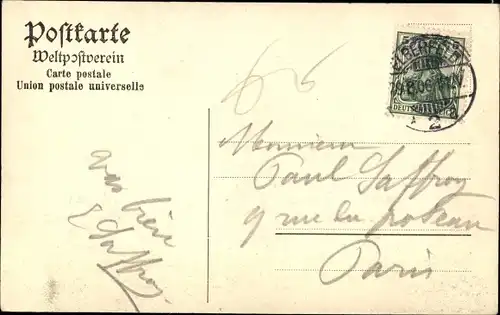 Postkarte
Weltpostverein
Carte postale
Union postale universelle
ELBERFELD
DEUTSCHES
2
Monsieur
Paul Saffroy
9 rue du poteau
Paris
bien
Saffroy